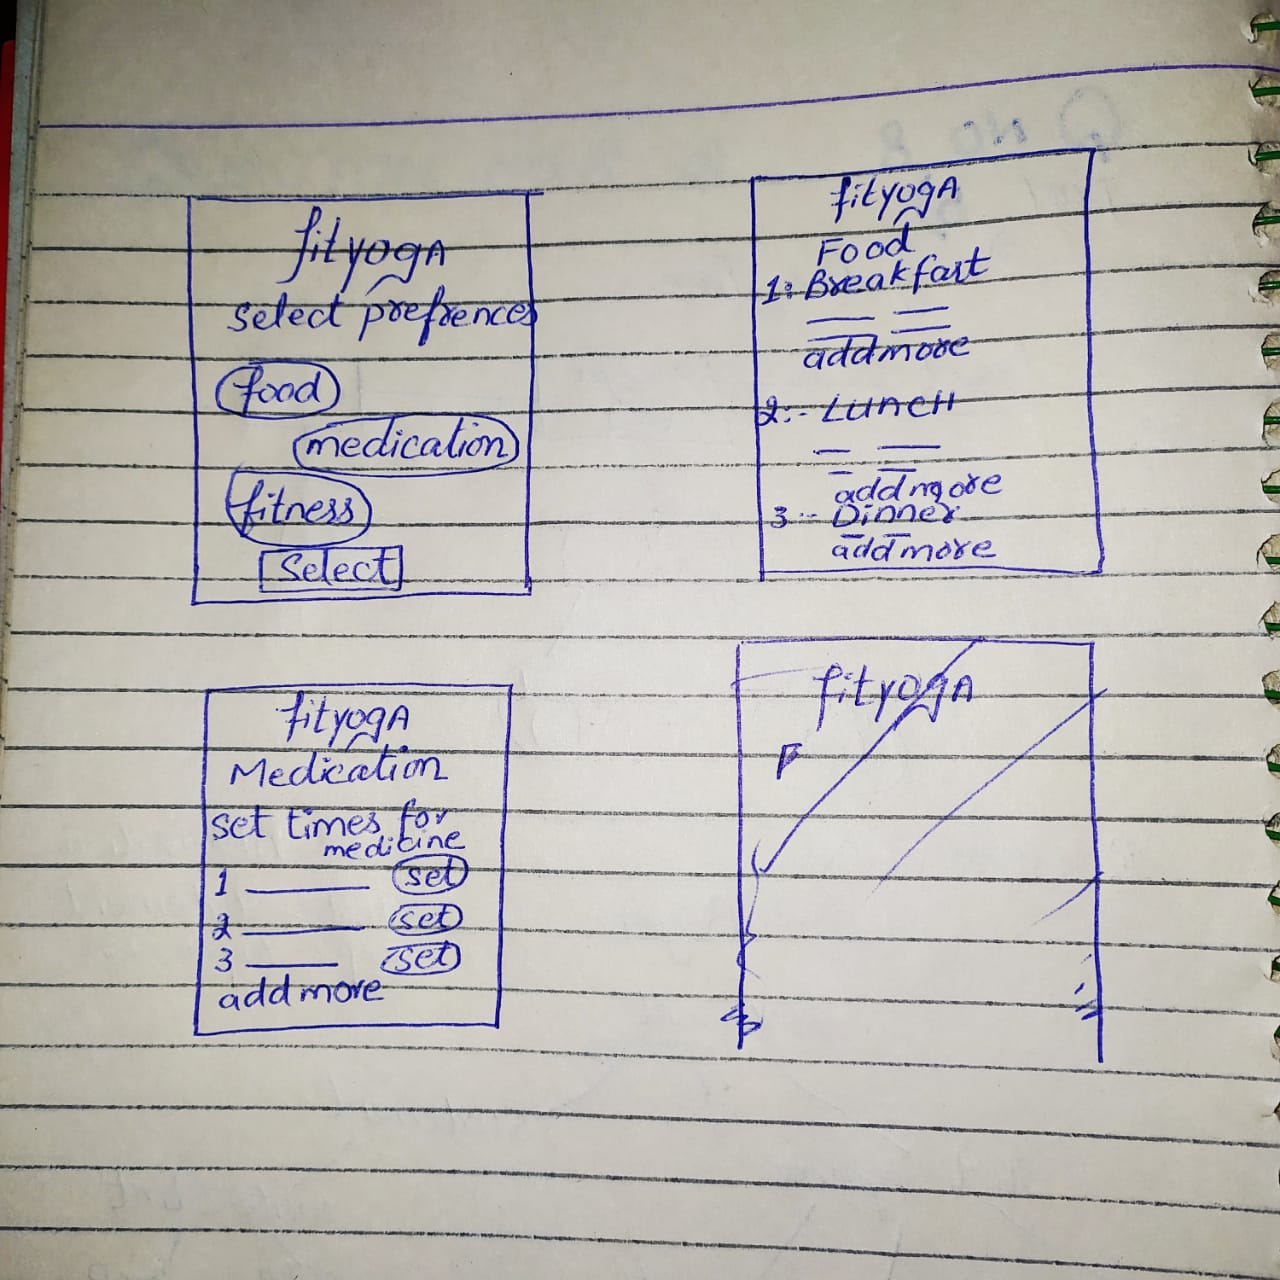 fityogA
select prefrences
food
medication
fitness
Select
fityogA
Food
1: Breakfast
add more
2:- LUNCH
add more
3:- Dinner
add more
fityogA
Medication
set times for
medicine
1 set
2 set
3 set
add more
fityogA
F